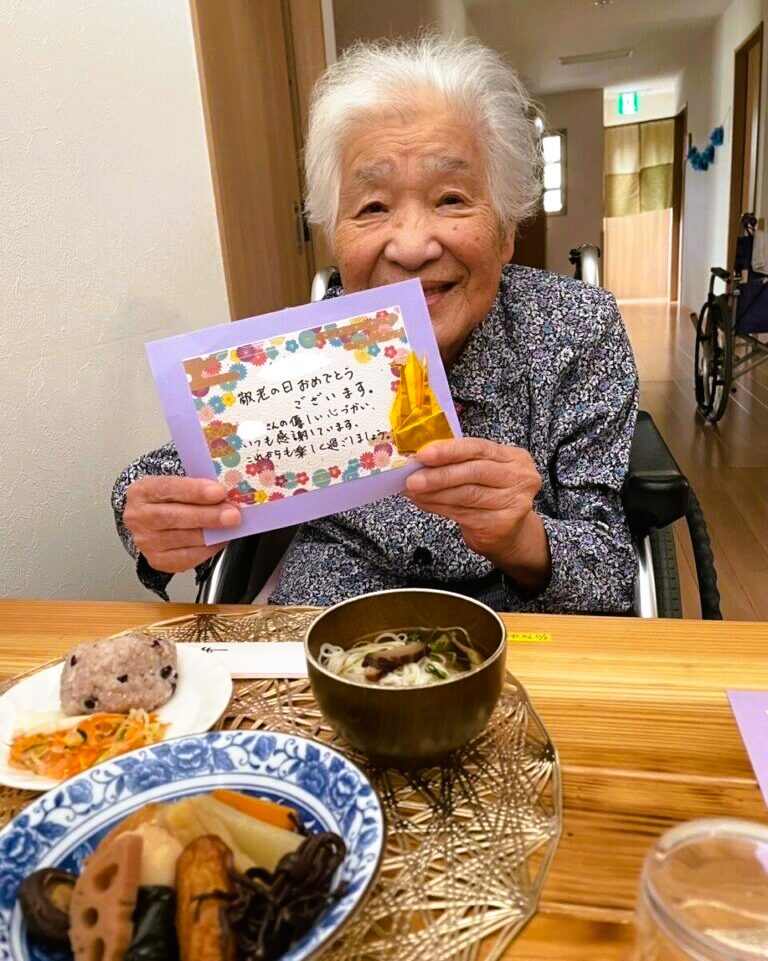 敬老の日おめでとう
ございます。
さんの優しい心づかい、
いつも感謝しています。
これからも楽しく過ごしましょう。